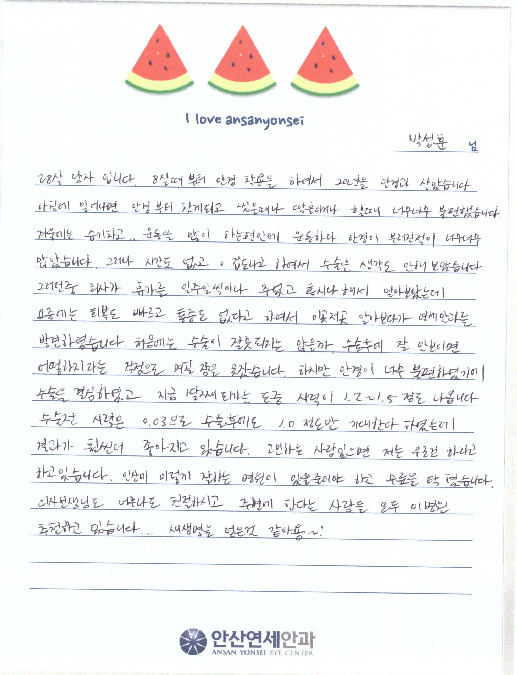 I love ansanyonsei
박성훈 님
28살 남자 입니다. 8살때부터 안경 착용을 하여서 20년을 안경과 살았습니다
아침에 일어나면 안경부터 찾게되고 씻을때나 땀흘리거나 할때 너무너무 불편했습니다
겨울에는 습기차고.. 운동을 많이 하는편인데 운동하다 안경이 부러진적이 너무너무
많았습니다. 그러나 시간도 없고 겁도나고 하여서 수술은 생각도 안해 보았습니다
그러던중 회사가 휴가를 일주일씩이나 주었고 혹시나해서 알아보았는데
요즘에는 회복도 빠르고 통증도 없다고 하여서 이곳저곳 알아보다가 연세안과를
발견하였습니다 처음에는 수술이 잘못되지는 않을까, 수술후에 잘 안보이면
어떡하지라는 걱정으로 며칠 잠을 못잤습니다. 하지만 안경이 너무 불편하였기에
수술을 결심하였고 지금 1달째 되가는 도중 시력이 1.2~1.5 정도 나옵니다
수술전 시력은 0.03으로 수술후에도 1.0 정도만 기대한다 하였는데
결과가 훨씬더 좋아지고 있습니다. 고민하는 사람있으면 저는 무조건 하라고
하고있습니다. 안산에 이렇게 잘하는 병원이 있을줄이야 하고 무릎을 탁 쳤습니다.
의사선생님도 너무나도 친절하시고 주변에 한다는 사람들 모두 이병원
추천하고 있습니다... 새생명을 얻은것 같아용~!
안산연세안과
ANSAN YONSEI EYE CENTER